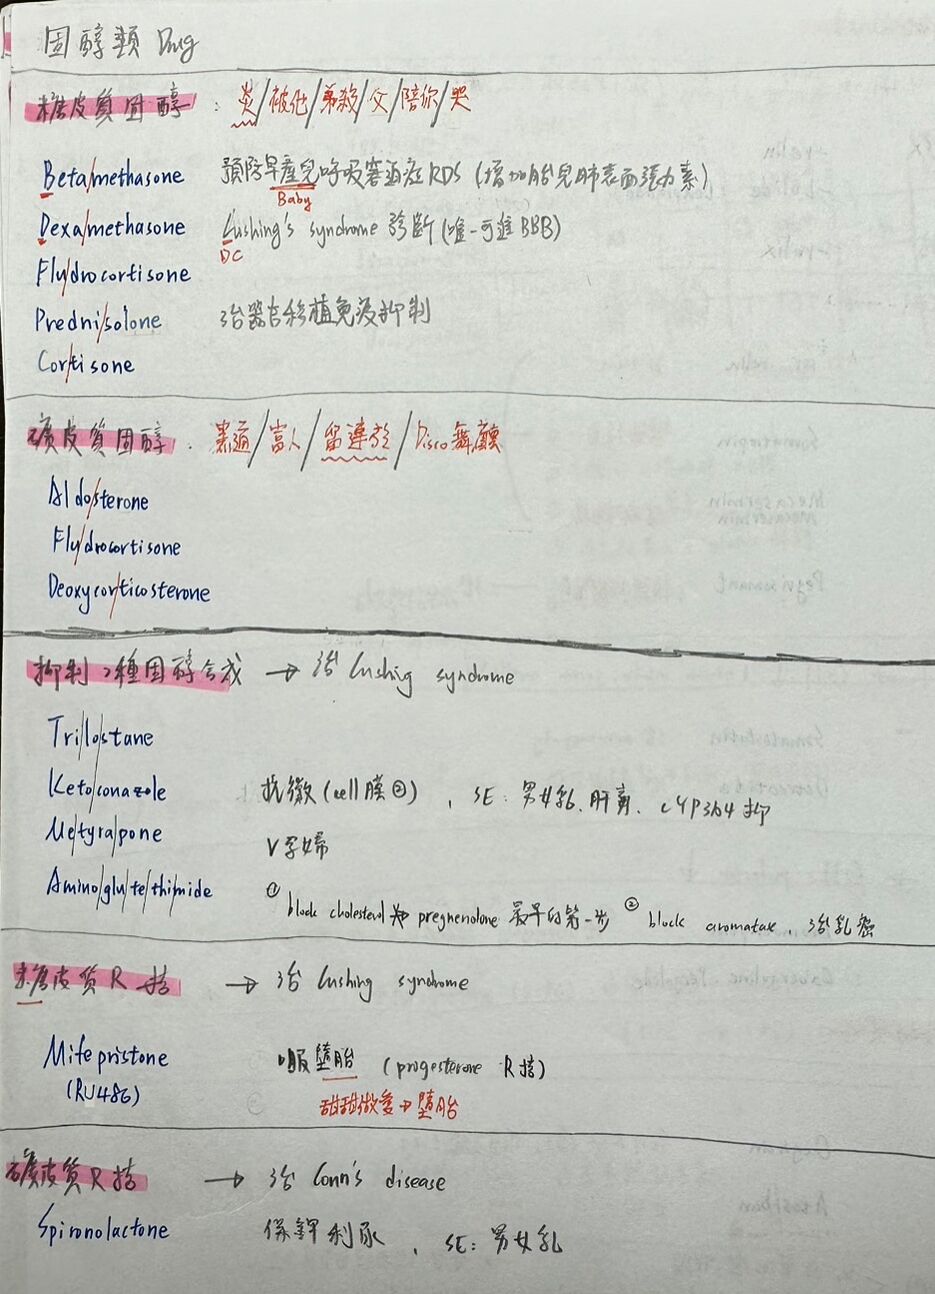 固醇類 Drug
糖皮質固醇 : 炎/被他/弟殺/父/陪你/哭
Beta/methasone 預防早產兒呼吸窘迫症RDS (增加胎兒肺表面張力素)
Baby
Dexa/methasone Cushing's syndrome 診斷(唯一可進BBB)
DC
Flu/drocortisone
Predni/solone 治器官移植免疫抑制
Cor/ti sone
礦皮質固醇 . 黑道/富人/留連於/Disco舞廳
Aldo/sterone
Flu/drocortisone
Deoxycor/ticosterone
抑制2種固醇合成 → 治 Cushing syndrome
Tri/lo/stane
Keto/conazole 抗黴(cell膜②) , SE: 男女乳、肝毒、CYP3A4抑
Me/tyra/pone V孕婦
Amino/glu/te/thi/mide ① block cholesterol → pregnenolone 最早的第一步 ② block aromatase . 治乳癌
糖皮質R拮 → 治 Cushing syndrome
Mifepristone 口服墮胎 (progesterone R拮)
(RU486) 甜甜做愛→墮胎
礦皮質R拮 → 治 Conn's disease
Spironolactone 保鉀利尿 , SE: 男女乳